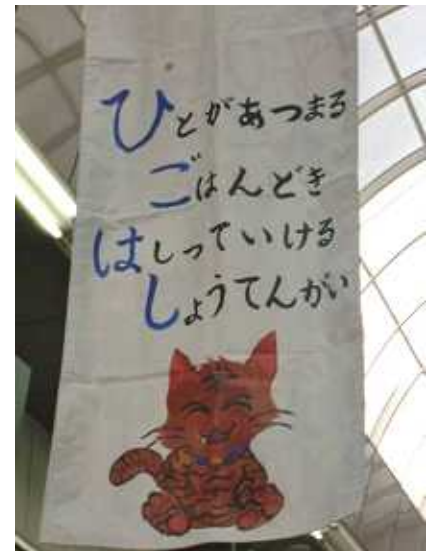 ひとがあつまる
ごはんどき
はしっていける
しょうてんがい